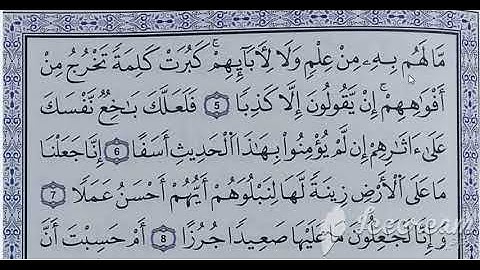 مَّا لَهُم بِهِۦ مِنْ عِلْمٍ وَلَا لِأٓبَآئِهِمْ ۚ كَبُرَتْ كَلِمَةً تَخْرُجُ مِنْ
أَفْوَٰهِهِمْ ۚ إِن يَقُولُونَ إِلَّا كَذِبًا 5 فَلَعَلَّكَ بَـٰخِعٌ نَّفْسَكَ
عَلَىٰٓ ءَاثَـٰرِهِمْ إِن لَّمْ يُؤْمِنُوا۟ بِهَـٰذَا ٱلْحَدِيثِ أَسَفًا 6 إِنَّا جَعَلْنَا
مَا عَلَى ٱلْأَرْضِ زِينَةً لَّهَا لِنَبْلُوَهُمْ أَيُّهُمْ أَحْسَنُ عَمَلًا 7
وَإِنَّا لَجَـٰعِلُونَ مَا عَلَيْهَا صَعِيدًا جُرُزًا 8 أَمْ حَسِبْتَ أَنَّ
Icecream